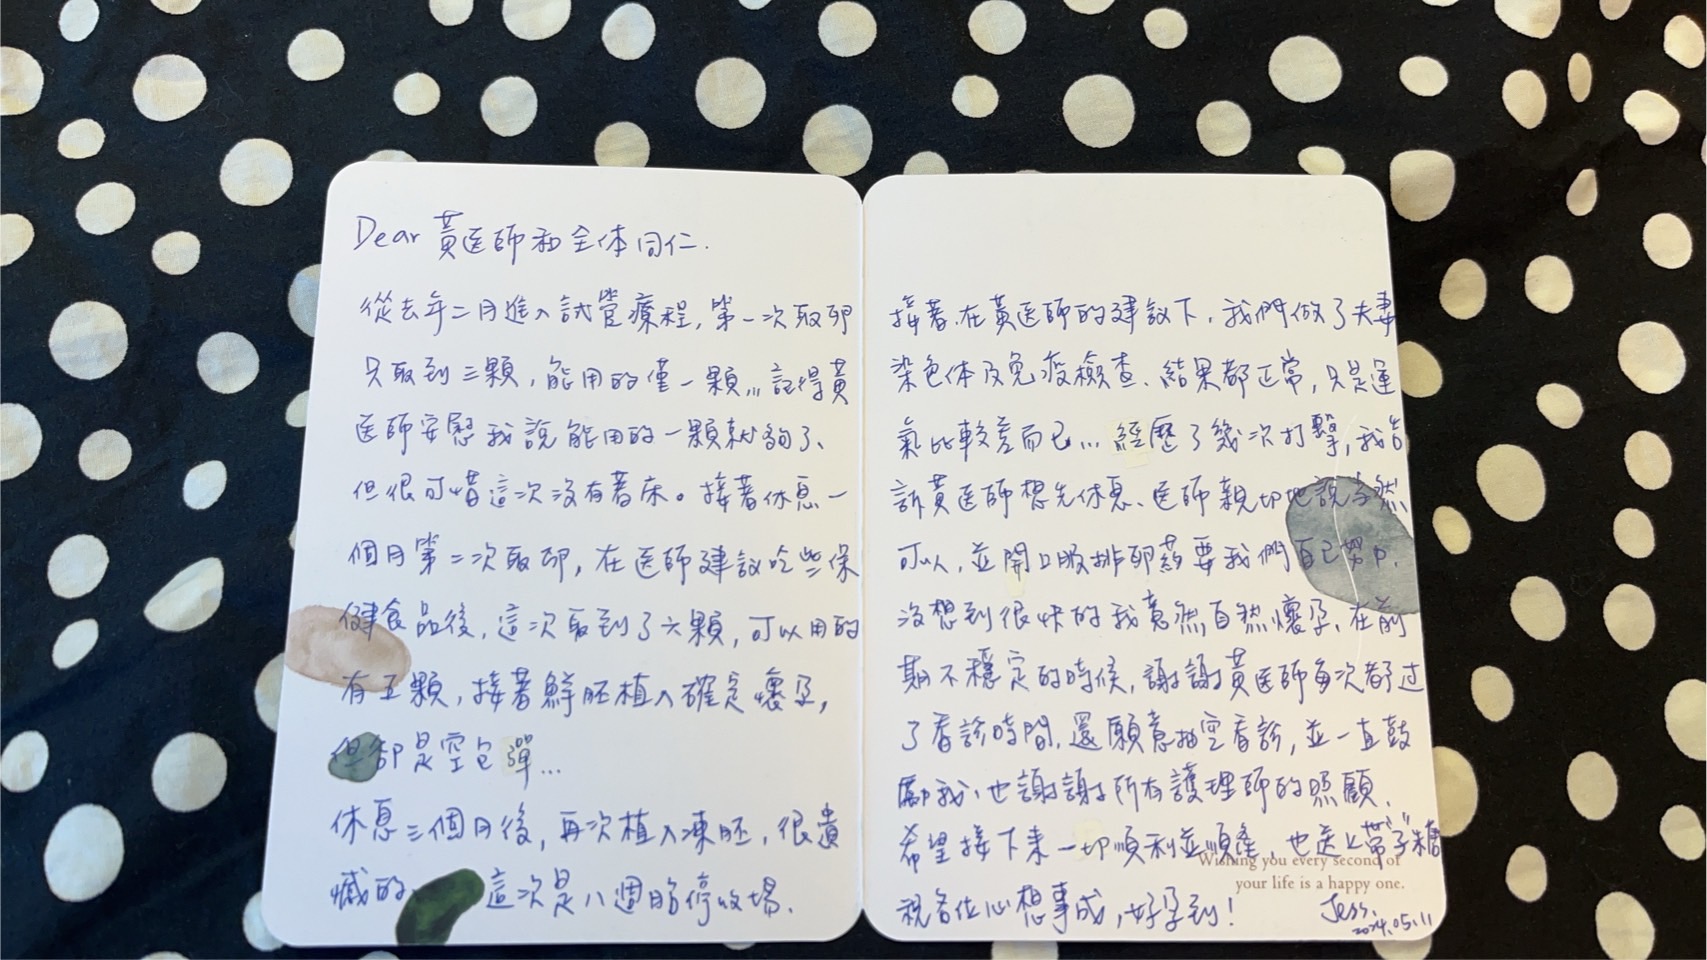 Dear 黃医師和全体同仁.
從去年二月進入試管療程,第一次取卵
只取到三顆,能用的僅一顆,,,記得黃
医師安慰我說能用的一顆就夠了、
但很可惜這次沒有著床。接著休息一
個月第二次取卵,在医師建議吃些保
健食品後,這次取到了六顆,可以用的
有五顆,接著鮮胚植入確定懷孕,
但卻是空包彈...
休息三個月後,再次植入凍胚,很遺
憾的 這次是八週胎停收場.
接著.在黃医師的建議下,我們做了夫妻
染色体及免疫檢查、結果都正常,只是運
氣比較差而已...經歷了幾次打擊,我告
訴黃医師想先休息、医師親切地說当然
可以,並開口服排卵藥要我們自己努力.
沒想到很快的我竟然自然懷孕、在前
期不穩定的時候,謝謝黃医師每次都过
了看診時間,還願意抽空看診,並一直鼓
勵我、也謝謝所有護理師的照顧.
希望接下來一切順利並順產,也送上"帶子"糖
Wishing you every second of
your life is a happy one.
祝各位心想事成,好孕到!
Jess.
2024.05.11